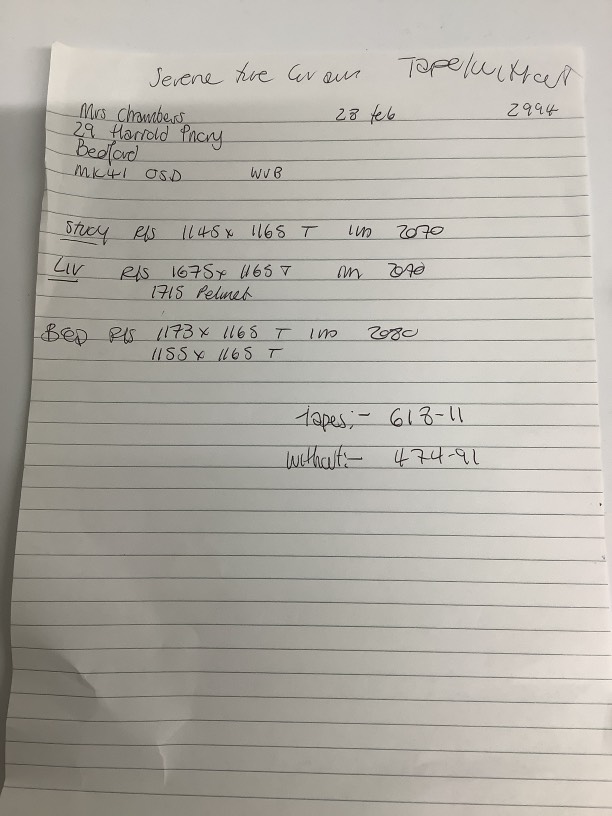 Serene Tape/without
Mrs Chambers 28 feb 2994
29 Harrold Priory
Bedford
MK41 OSD WVB
Study R/S 1145 x 1165 T 2070
Liv R/S 1675 x 1165 T
1715 Pelmet
BED R/S 1173 x 1165 T 2080
1155 x 1165 T
Tapes:- 618-11
Without:- 474-91